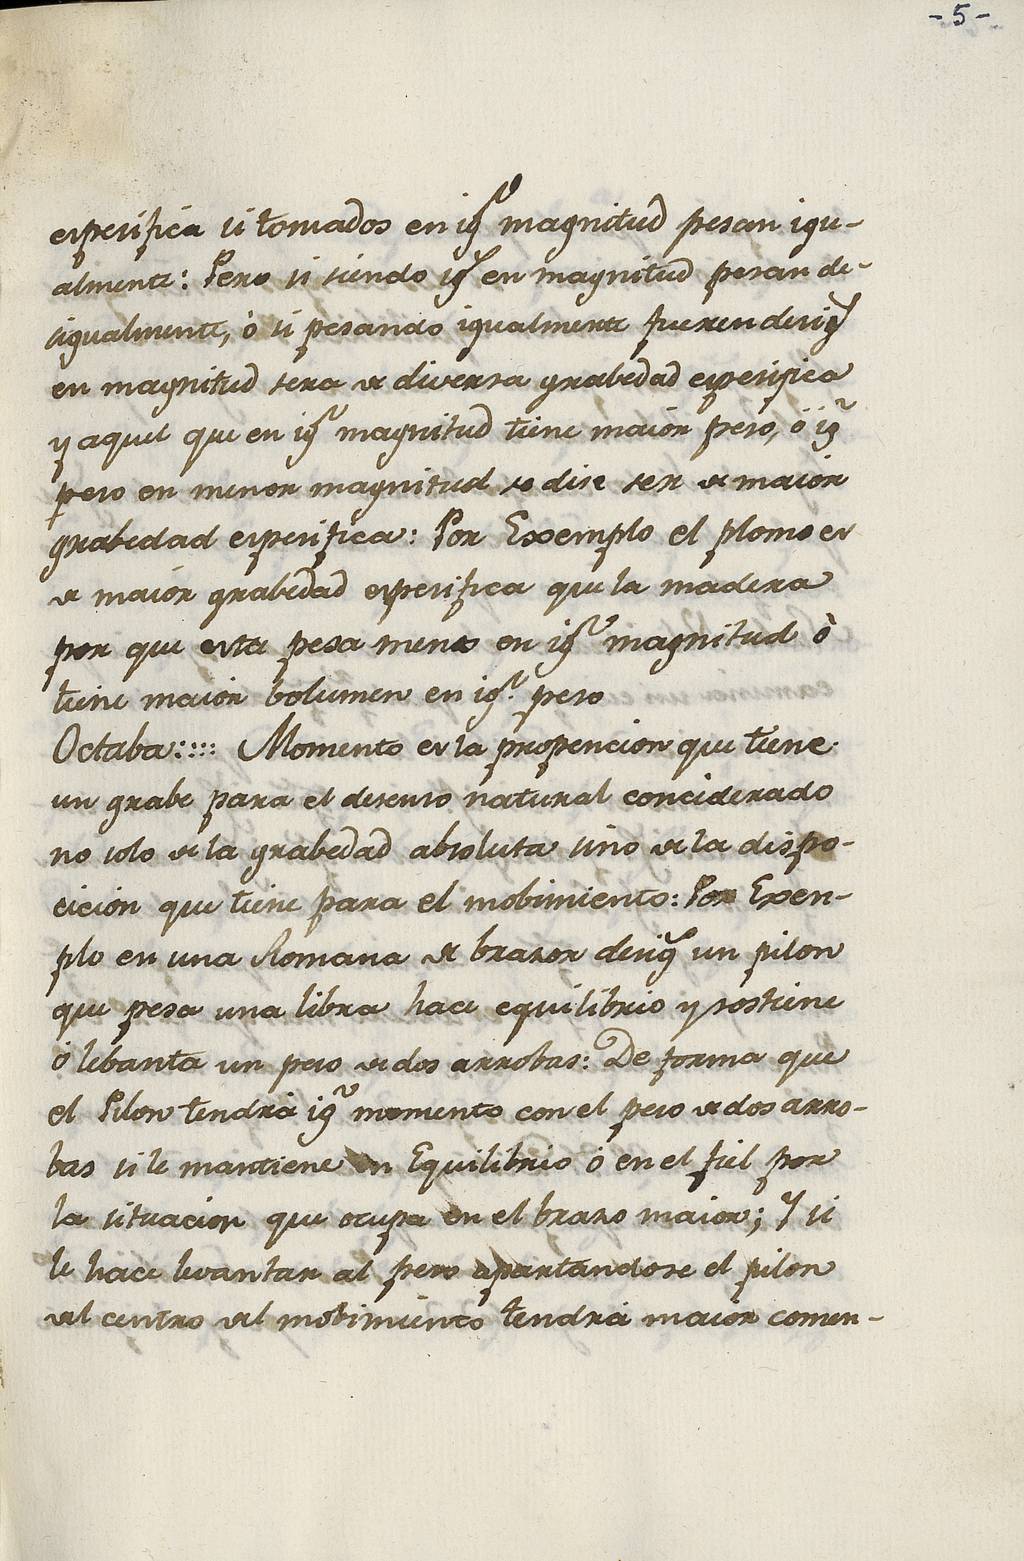 -5-
espesifica si tomados en ig.l magnitud pesan igu-
almente: Pero si siendo ig.l en magnitud pesan de-
sigualmente, ò si pesando igualmente fueren desig.l
en magnitud sera de diversa grabedad espesifica
y aquel que en ig.l magnitud tiene maior peso, ó ig.l
peso en menor magnitud se dise ser de maior
grabedad espesifica: Por Exemplo el plomo es
de maior grabedad espesifica que la madera
por que esta pesa menos en ig.l magnitud ò
tiene maior bolumen en ig.l peso
Octaba:::: Momento es la propencion que tiene
un grabe para el desenso natural conciderado
no solo de la grabedad absoluta sino de la dispo-
cicion que tiene para el mobimiento: Por Exen-
plo en una Romana de brasos desig.s un pilon
que pesa una libra hace equilibrio y sostiene
ó lebanta un peso de dos arrobas: De forma que
el Pilon tendrà ig.l momento con el peso de dos arro-
bas si le mantiene en Equilibrio ó en el fiel por
la situacion que ocupa en el braso maior; Y si
le hace levantar al peso apartandose el pilon
del centro del mobimiento tendrà maior comen-